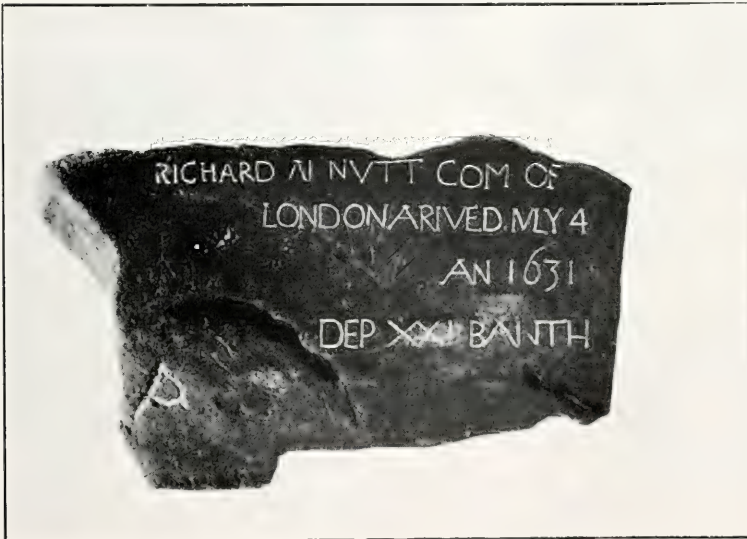 RICHARD AI NVTT COM OF
LONDON ARIVED. MLY 4
AN 1631
DEP XXI BANTH